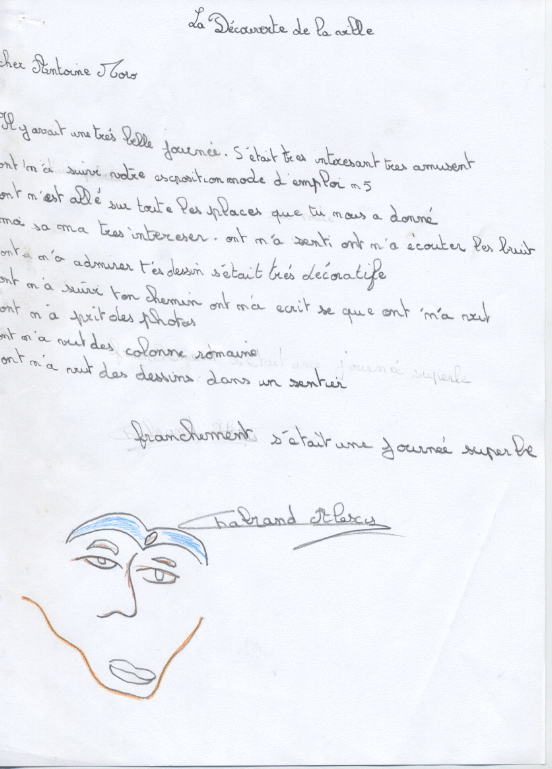 La Découverte de la ville
cher Antoine Moro
Il y avait une très belle journée. S'était tres intéresant tres amusent
ont m'a suivi votre escposition mode d'emploi n5
ont n'est allé sur toute les places que tu nous a donné
moi sa ma tres intereser. ont m'a senti ont m'a écouter les bruit
ont a m'a admirer t'es dessin s'était trés décoratife
ont m'a suivi ton chemin ont m'a ecrit se que ont m'a vut
ont m'a prit des photos
ont m'a vut des colonne romaine
ont m'a vut des dessins dans un sentier
franchement s'était une journée superbe
Chabrand Alexis